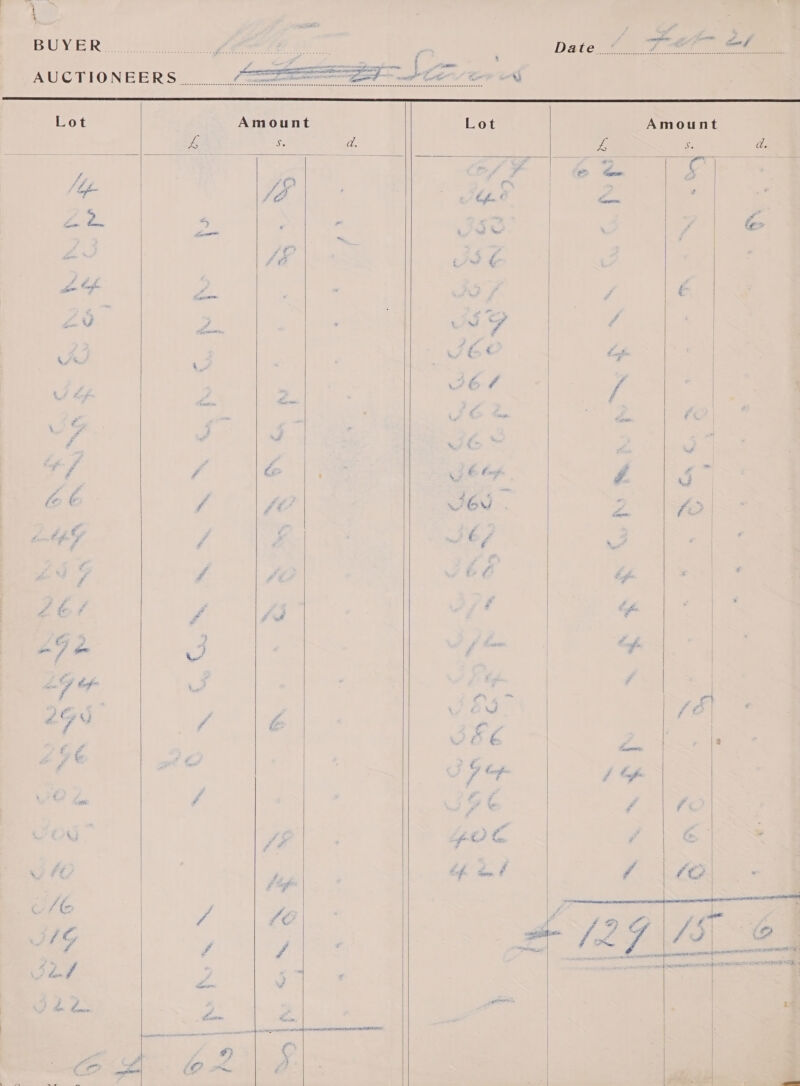 BUYER
Date 1 Feb 21
AUCTIONEERS Stevens
Lot Amount Lot Amount
£ s. d. £ s. d.
14 18 -
22 2 - -
23 18 -
24 2 - -
25 2 - -
33 3 - -
34 2 2 -
39 5 5 -
47 1 6 -
66 1 10 -
249 1 8 -
259 1 10 -
261 1 15 -
292 3 - -
294 3 - -
295 1 6 -
296 20
302 1 - -
305 18 -
310 14 -
316 1 10 -
319 1 1 -
321 2 5 -
322 2 2
C/F 62 8
C/F 62 8 -
348 2 - -
353 3 7 6
356 3 - -
357 1 6 -
359 1 -
360 4 - -
361 7 - -
362 2 10 -
363 2 5 -
364 1 5 -
365 2 10 -
367 3 - -
368 4 - -
371 4 - -
372 4 -
384 1 -
385 18 -
386 2 - -
394 14
396 1 10
406 1 6 -
421 1 10 -
£ 129 15 6